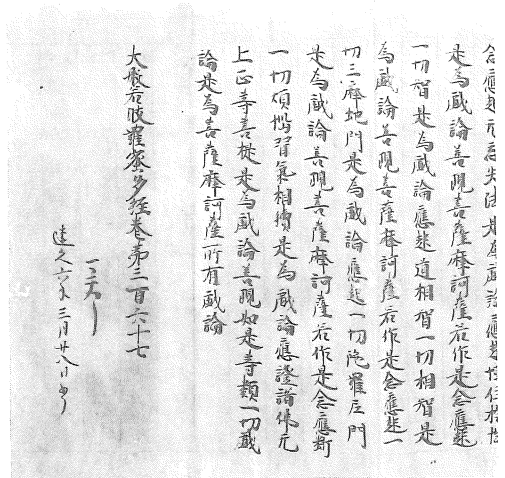 念應起无忘失法是為戲論應起恒住捨性
是為戲論善現菩薩摩訶薩若作是念應起
一切智是為戲論應起道相智一切相智是
為戲論善現菩薩摩訶薩若作是念應起一
切三摩地門是為戲論應起一切陀羅尼門
是為戲論善現菩薩摩訶薩若作是念應斷
一切煩惱習氣相續是為戲論應證諸佛无
上正等菩提是為戲論善現如是等類一切戲
論是為菩薩摩訶薩所有戲論
大般若波羅蜜多經卷第三百六十七
一交了
建久六年三月廿八日